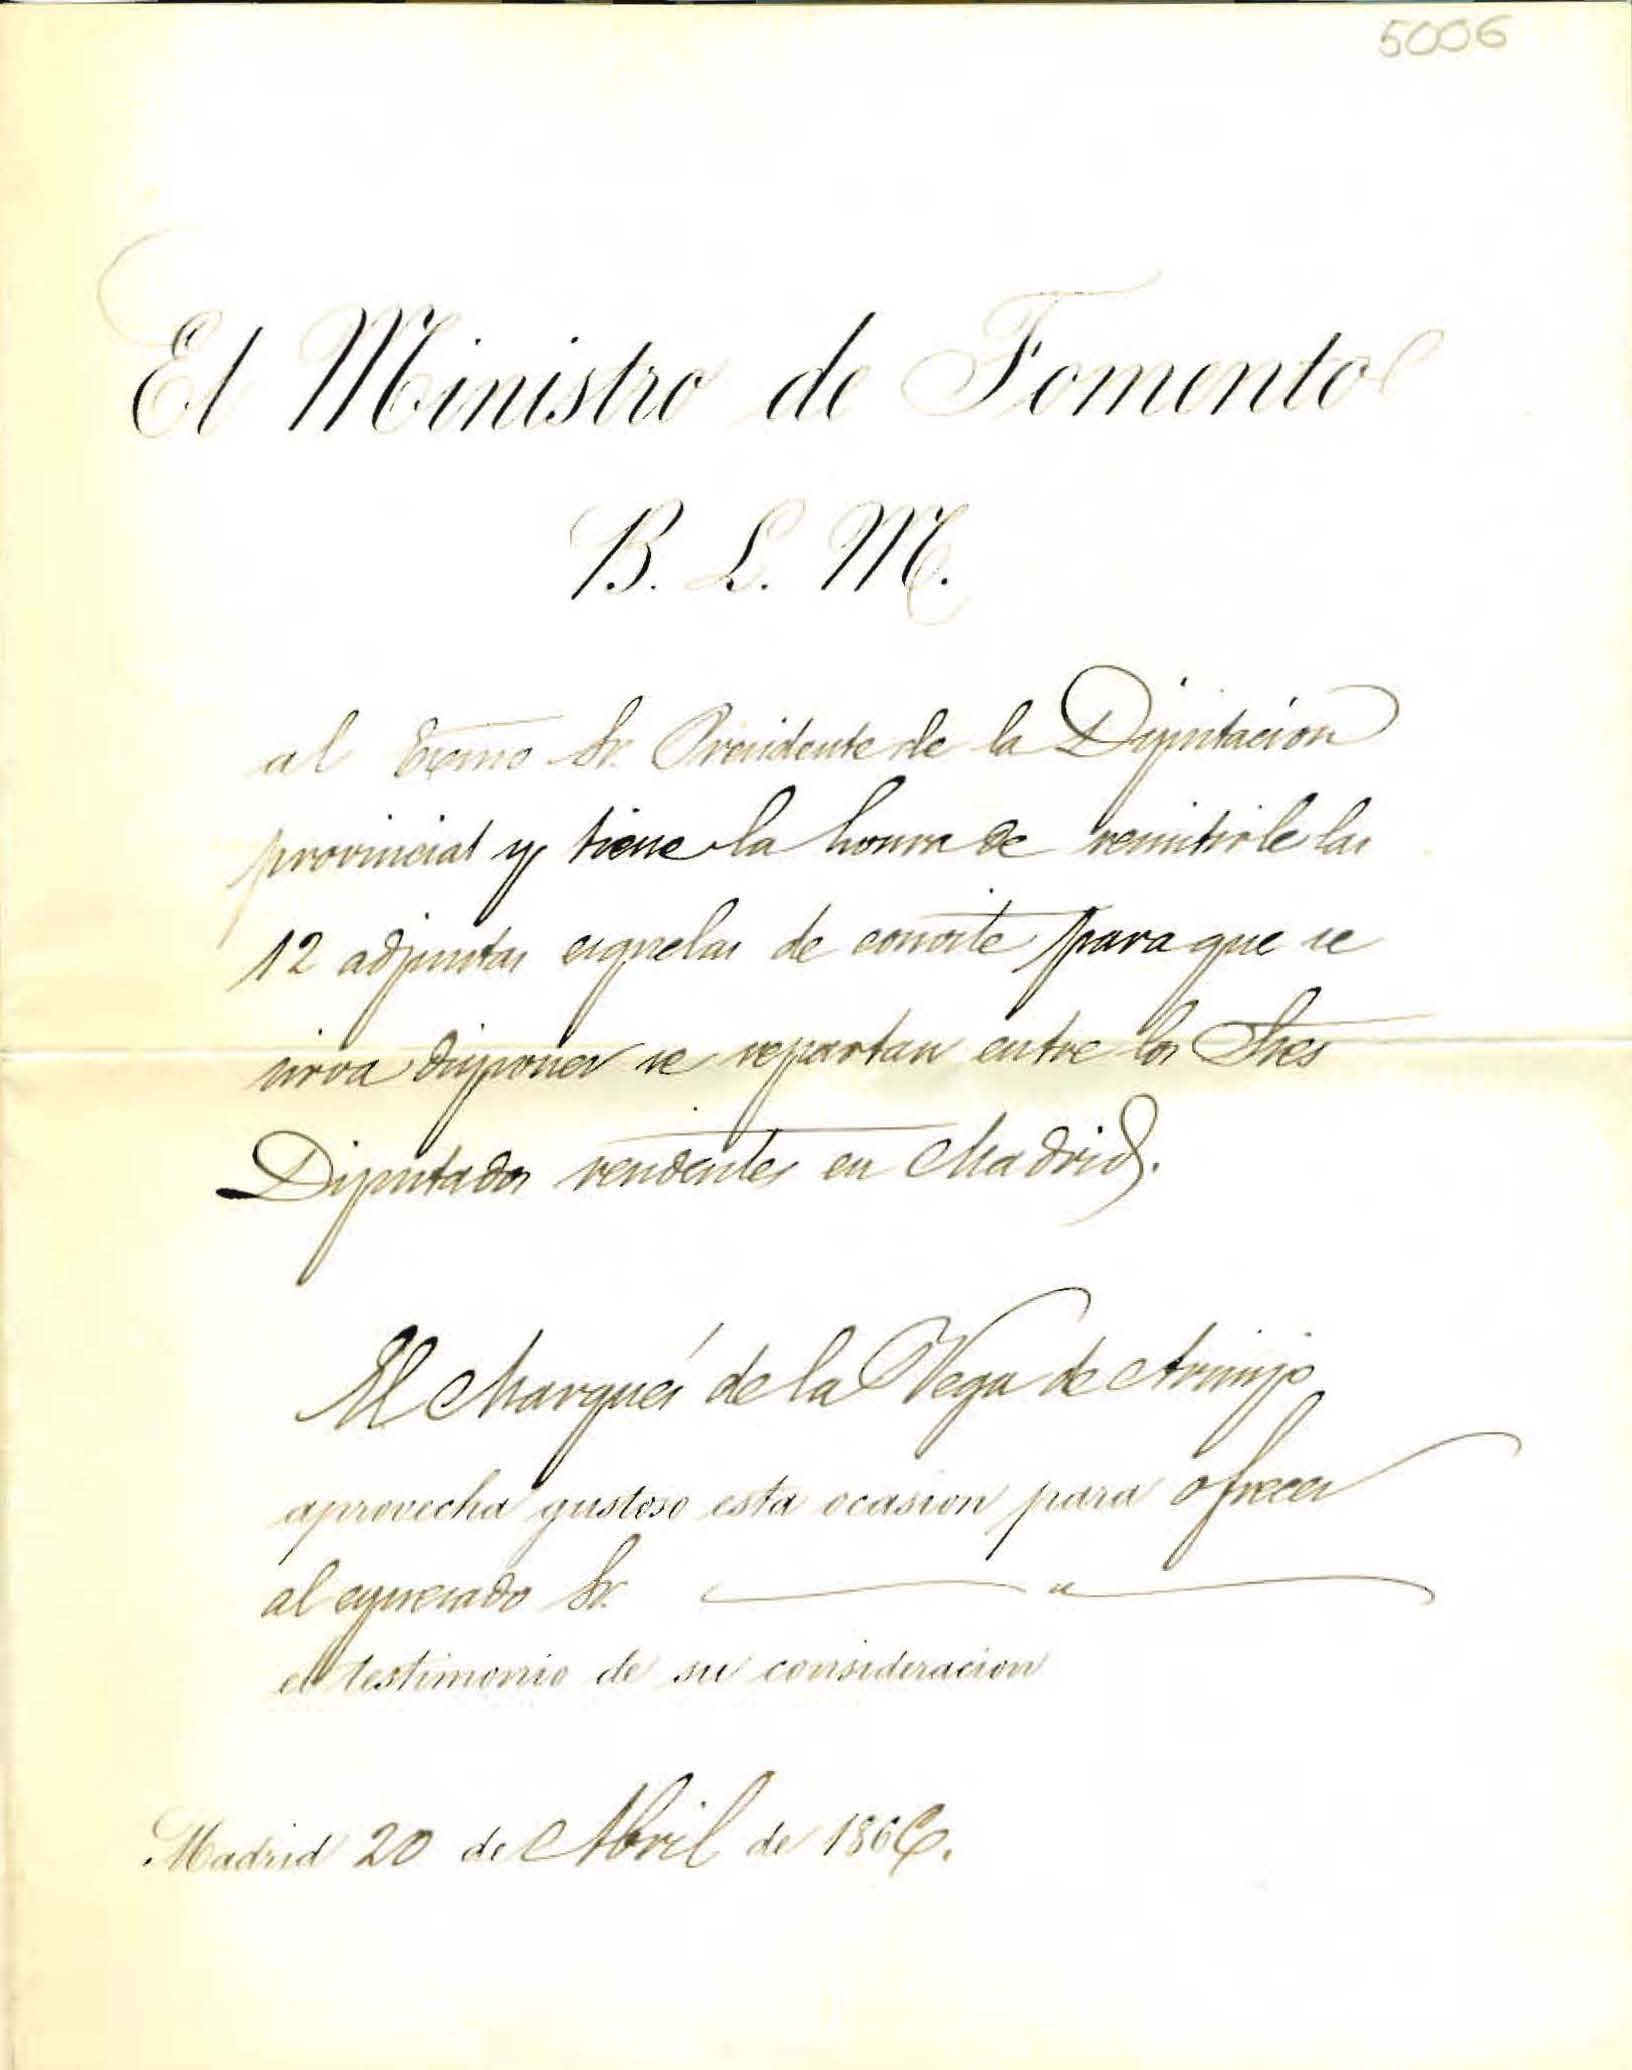 5006
El Ministro de Fomento
B. L. M.
al Excmo Sr. Presidente de la Diputacion
provincial y tiene la honra de remitirle las
12 adjuntas esquelas de convite para que se
sirva disponer se repartan entre los Sres
Diputados residentes en Madrid.
El Marqués de la Vega de Armijo
aprovecha gustoso esta ocasion para ofrecer
al expresado Sr. — " —
el testimonio de su consideracion
Madrid 20 de Abril de 1866.